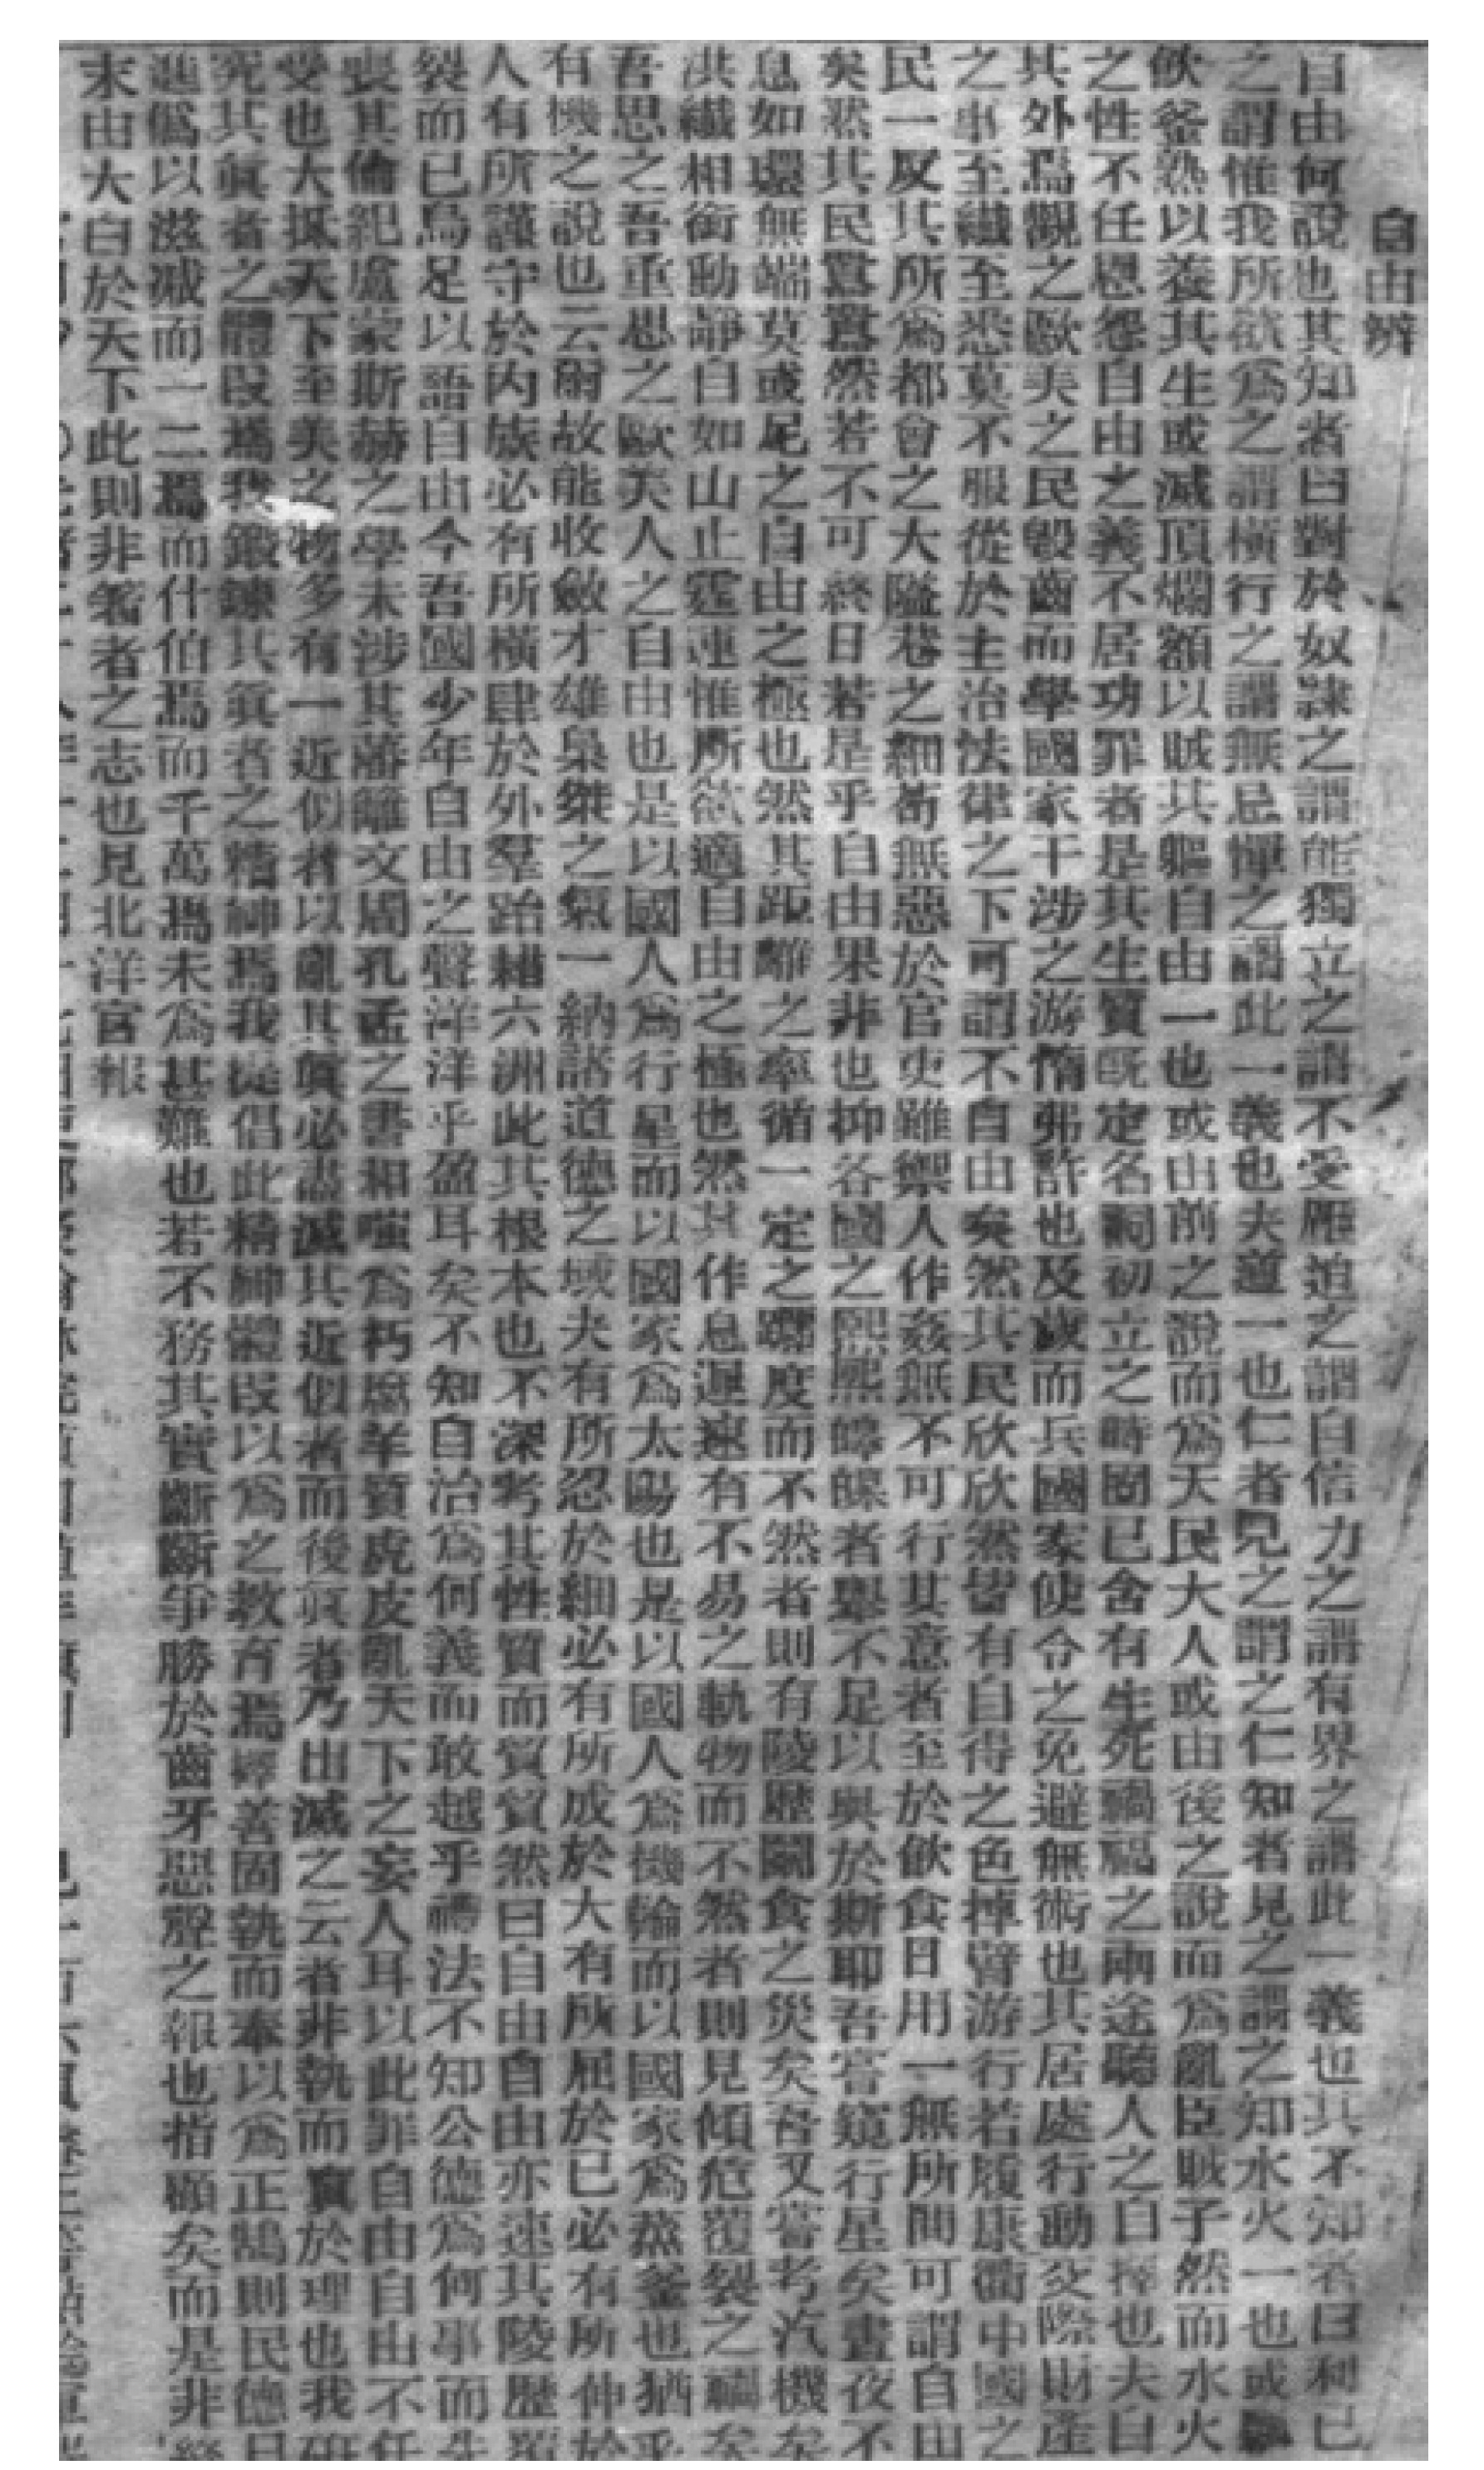 自由辨
自由何說也其知者曰對於奴隷之謂能獨立之謂不受壓迫之謂自信力之謂有界之謂此一義也其不知者曰利己
之謂惟我所欲爲之謂橫行之謂無忌憚之謂此一義也夫道一也仁者見之謂之仁知者見之謂之知水火一也或
飲釜熟以養其生或滅頂爛額以賊其軀自由一也或由前之說而爲天民大人或由後之說而爲亂臣賊子然而水火
之性不任恩怨自由之義不居功罪者是其生質旣定名詞初立之時固已舍有生死禍福之兩途聽人之自擇也夫自
其外焉觀之歐美之民毀齒而學國家干涉之游惰弗許也及歲而兵國家使令之免避無術也其居處行動交際財產
之事至纖至悉莫不服從於主治法律之下可謂不自由矣然其民欣欣然皆有自得之色掉臂游行若履康衢中國之
民一反其所爲都會之大隘巷之細苟無惡於官吏雖禦人作姦無不可行其意者至於飲食日用一無所問可謂自由
矣然其民囂囂然若不可終日若是乎自由果非也抑各國之熙熙皞皞者舉不足以與於斯耶吾嘗窺行星矣晝夜不
息如環無端莫或尼之自由之極也然其距離之率循一定之躔度而不然者則有陵歷鬬食之災矣吾又嘗考汽機矣
洪纖相銜動靜自如山止霆運惟所欲適自由之極也然其作息遲速有不易之軌物而不然者則見傾危覆裂之禍矣
吾思之吾重思之歐美人之自由也是以國人爲行星而以國家爲太陽也是以國人爲機輪而以國家爲蒸釜也猶乎
有機之說也云爾故能收斂才雄梟桀之氣一納諸道德之域夫有所忍於細必有所成於大有所屈於己必有所伸於
人有所謹守於內族必有所橫肆於外羣跆籍六洲此其根本也不深考其性質而貿貿然曰自由自由亦速其陵歷覆
裂而已烏足以語自由今吾國少年自由之聲洋洋乎盈耳矣不知自治爲何義而敢越乎禮法不知公德爲何事而先
喪其倫紀盧蒙斯赫之學未涉其藩籬文周孔孟之書相嗤爲朽腐羊質虎皮亂天下之妄人耳以此罪自由自由不任
受也大抵天下至美之物多有一近似者以亂其眞必盡滅其近似者而後眞者乃出滅之云者非執而實於理也我研
究其眞者之體段焉我鍛鍊其眞者之精神焉我提倡此精神體段以爲之敎育焉擇善固執而奉以爲正鵠則民德日
進僞以滋减而一二焉而什伯焉而千萬焉未爲甚難也若不務其實斷斷爭勝於齒牙惡聲之報也指顧矣而是非終
末由大白於天下此則非箸者之志也見北洋官報